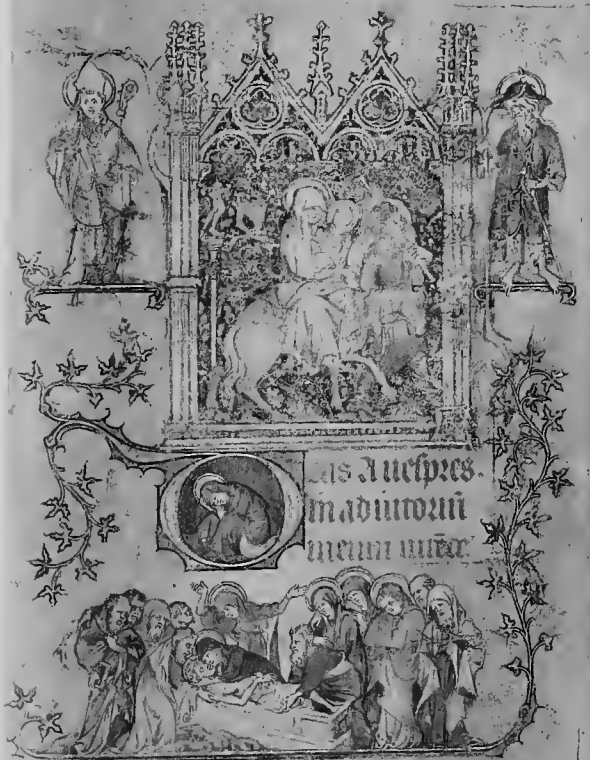 Deus A uespres.
in adiutoriũ
meum intẽde